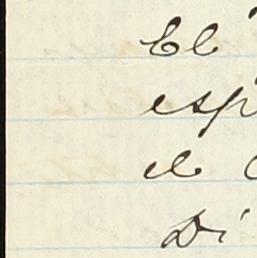 El
esp
el
Di